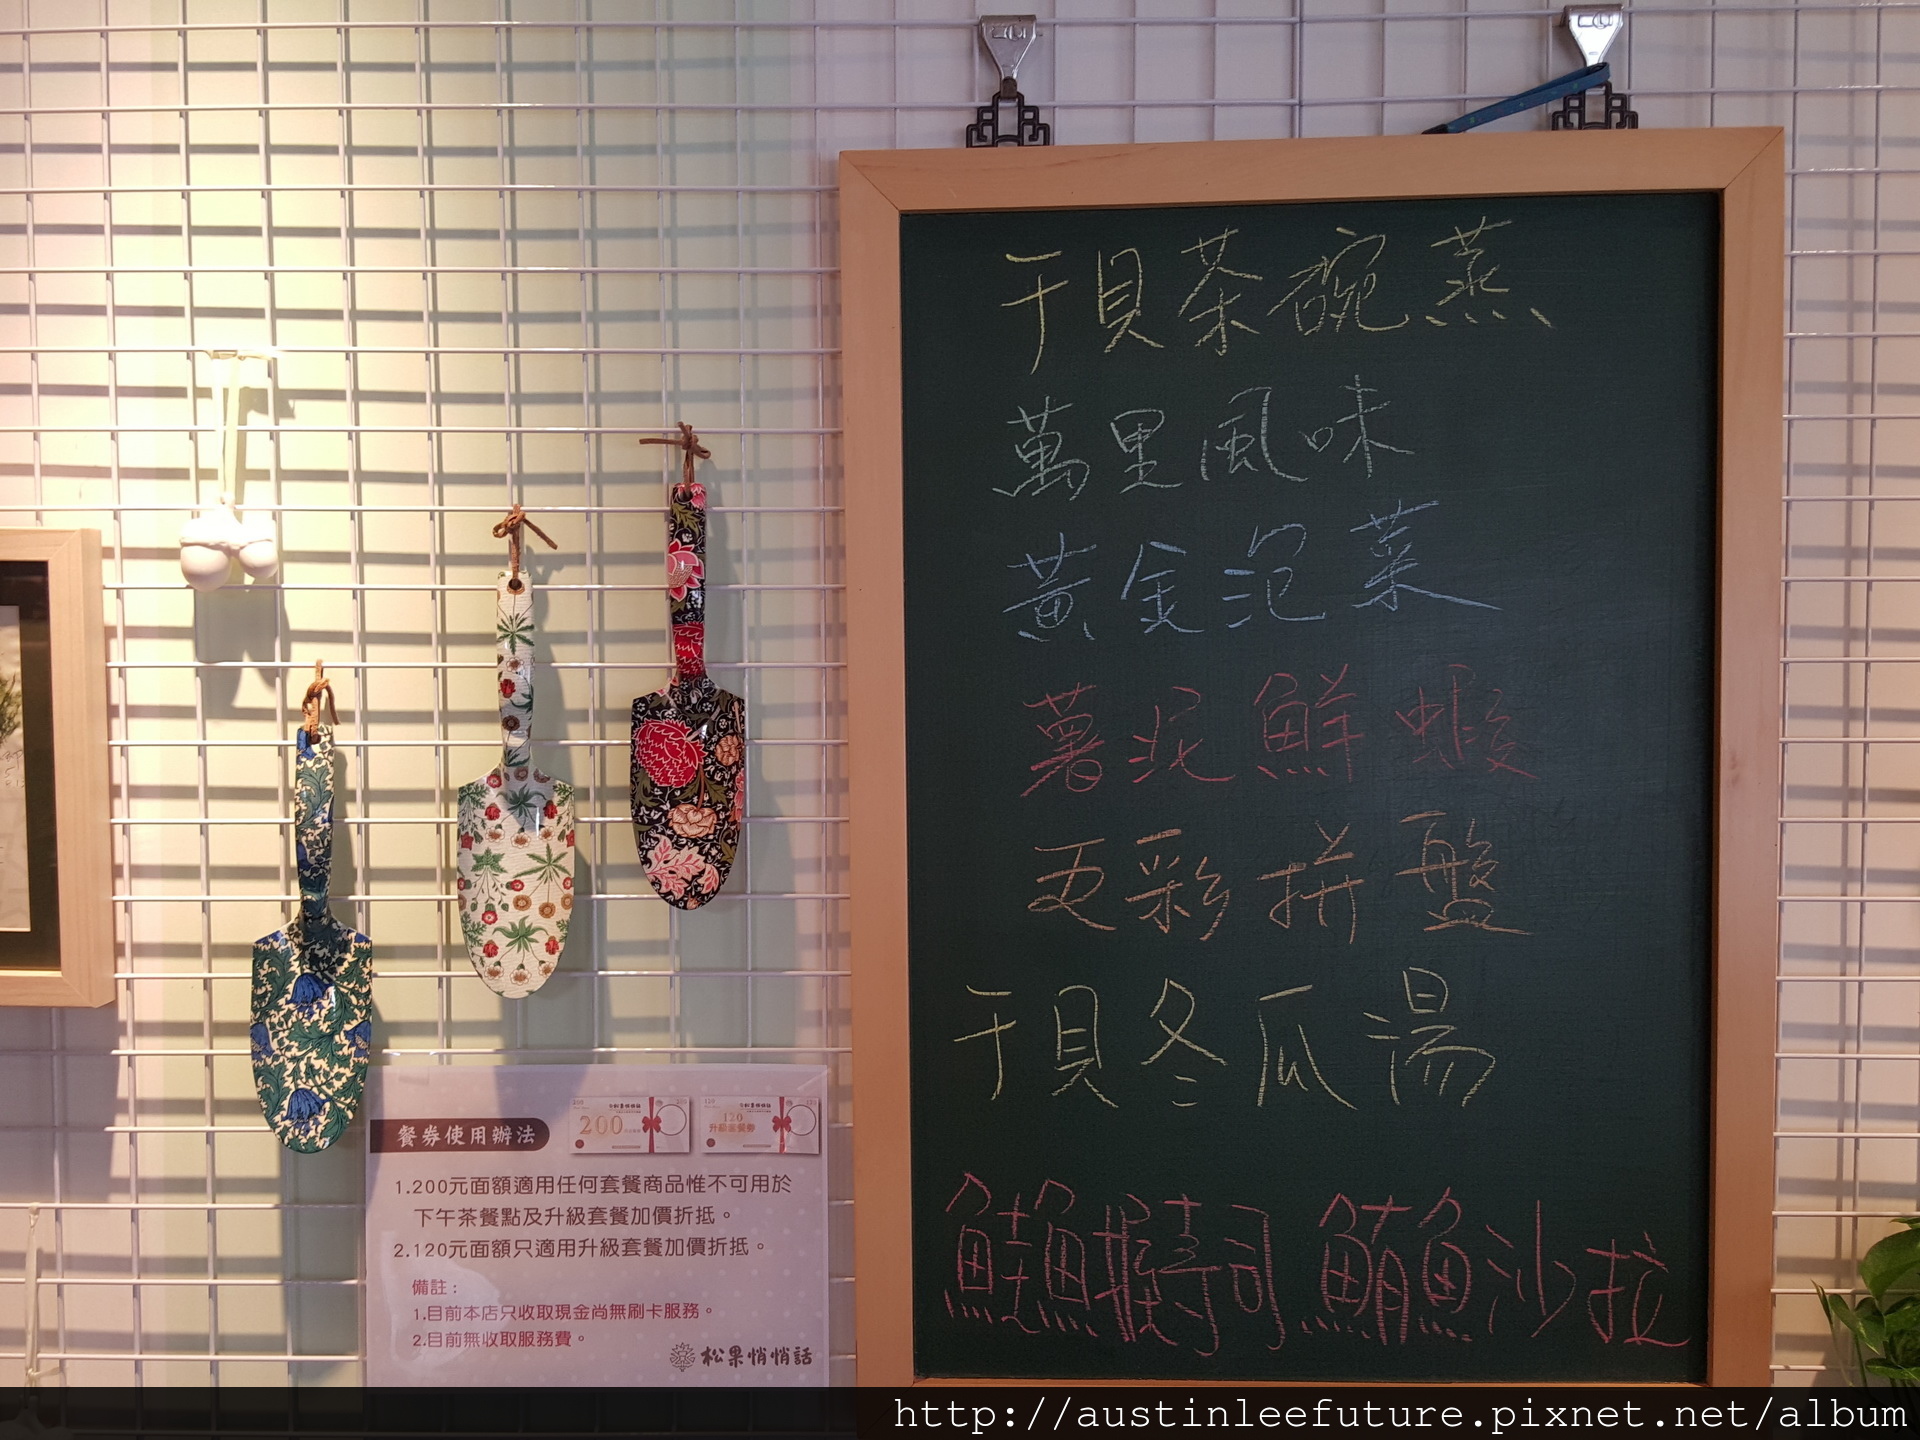 干貝茶碗蒸
萬里風味
黃金泡菜
薯泥鮮蝦
五彩拼盤
干貝冬瓜湯
鮭魚握壽司 鮪魚沙拉
餐券使用辦法
200
120
升級套餐券
1.200元面額適用任何套餐商品惟不可用於
下午茶餐點及升級套餐加價折抵。
2.120元面額只適用升級套餐加價折抵。
備註：
1.目前本店只收取現金尚無刷卡服務。
2.目前無收取服務費。
松果悄悄話
http://austinleefuture.pixnet.net/album